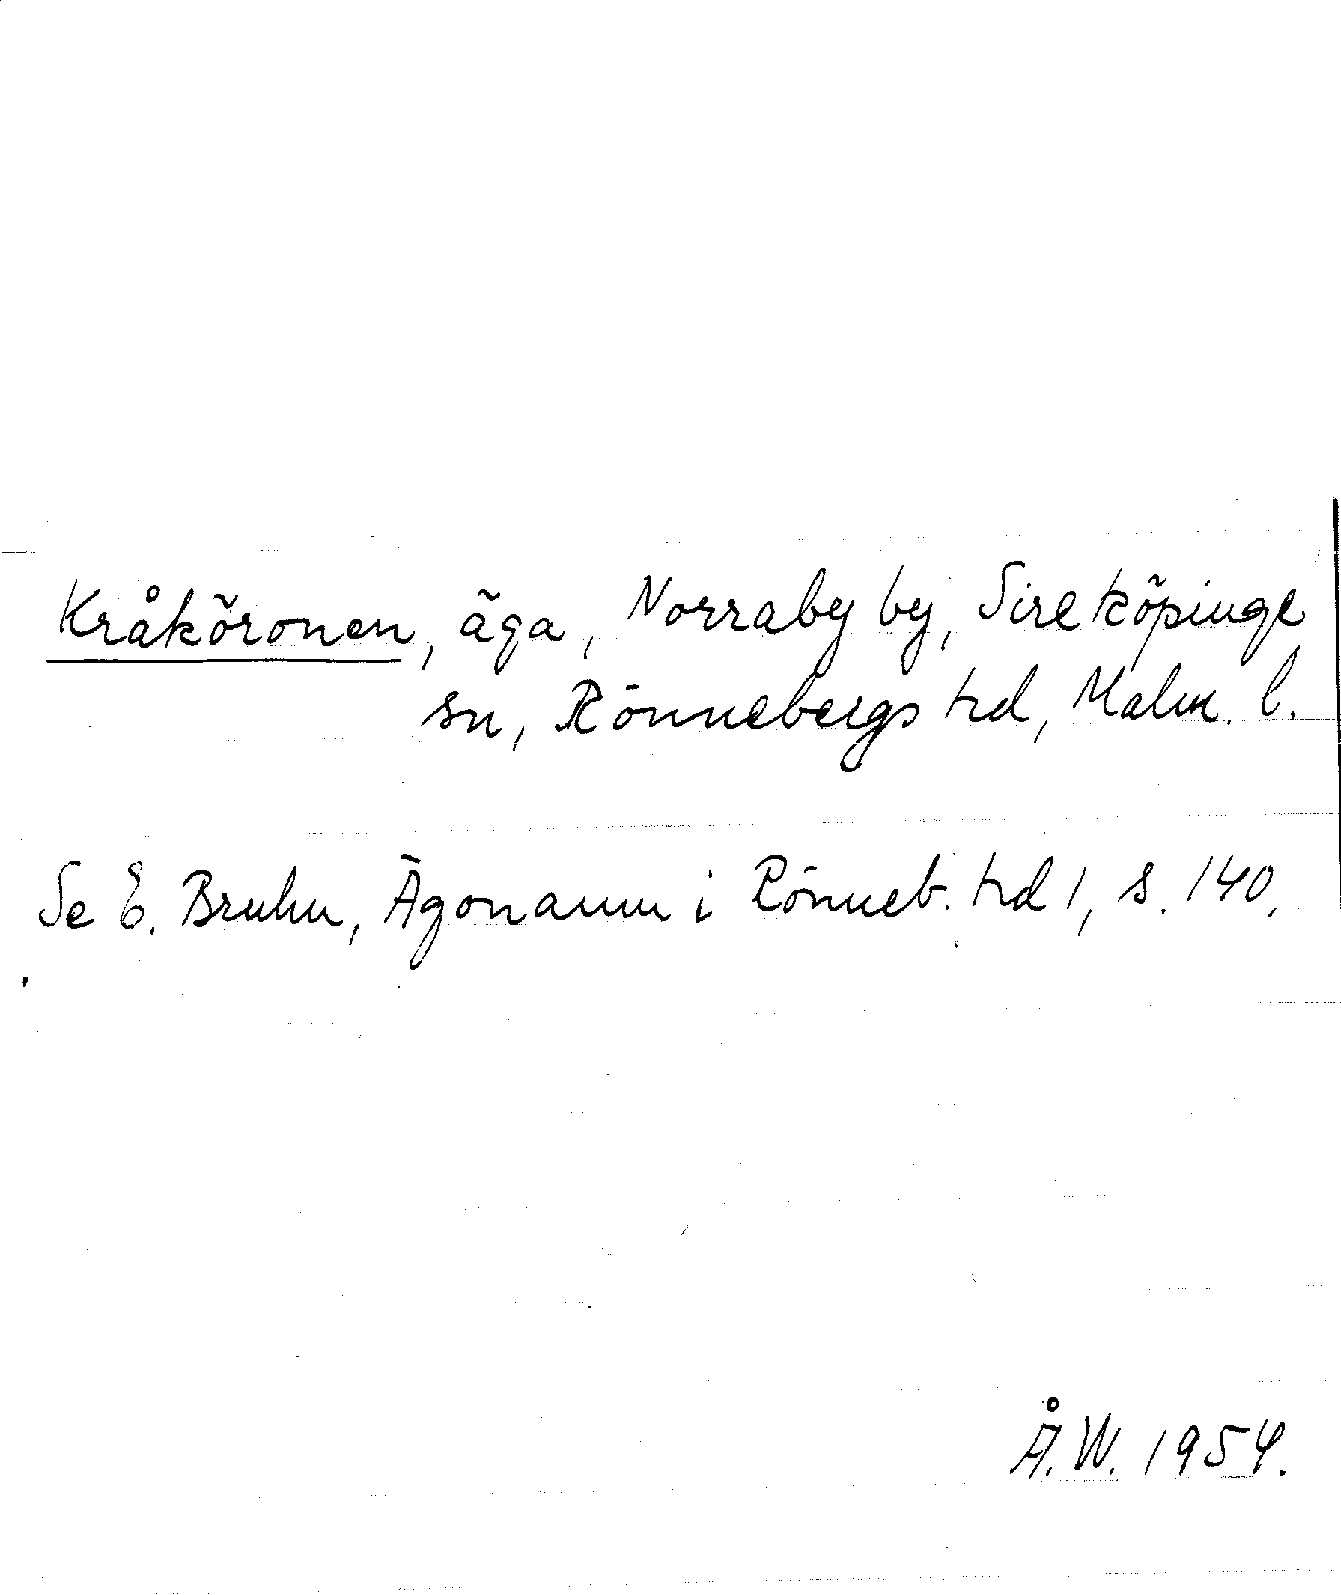 Kråköronen, äga, Norraby by, Sireköpinge
sn, Rönnebergs hd, Malm. l.
Se E. Bruhn, Ägonamn i Rönneb. hd 1, s. 140.
Å.W. 1954.